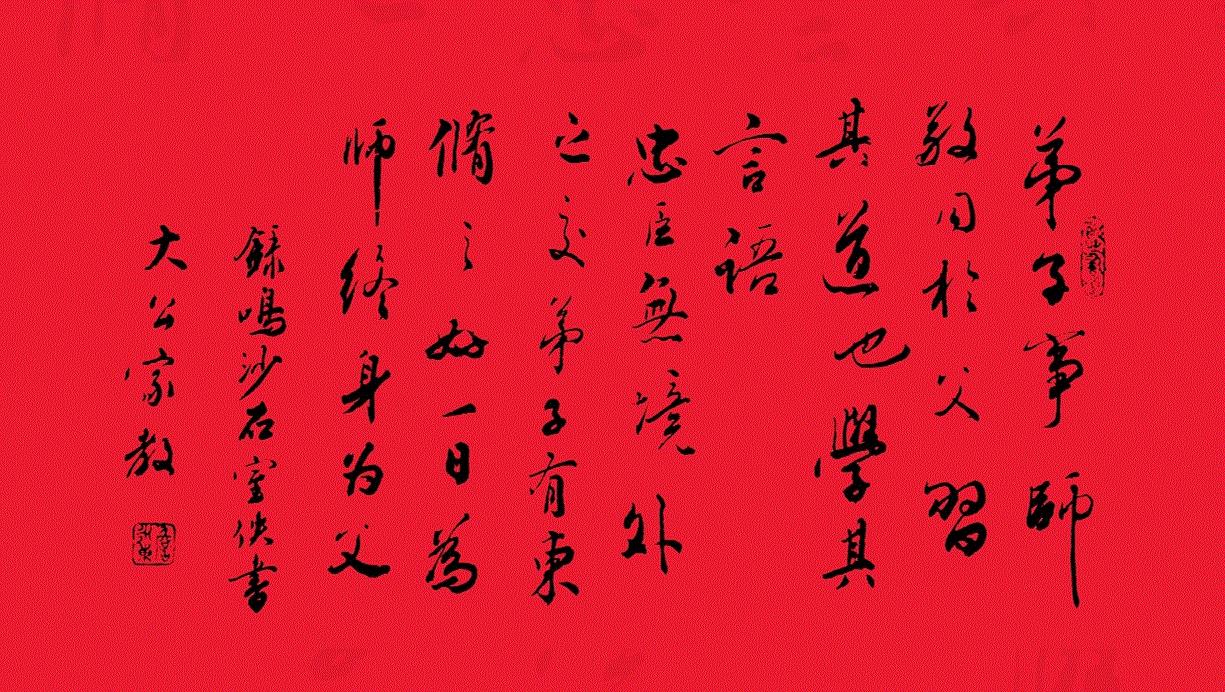 弟子事師
敬同於父習
其道也學其
言語
忠臣無境外
之交弟子有束
脩之好一日為
师终身为父
録鳴沙石室佚书
太公家教